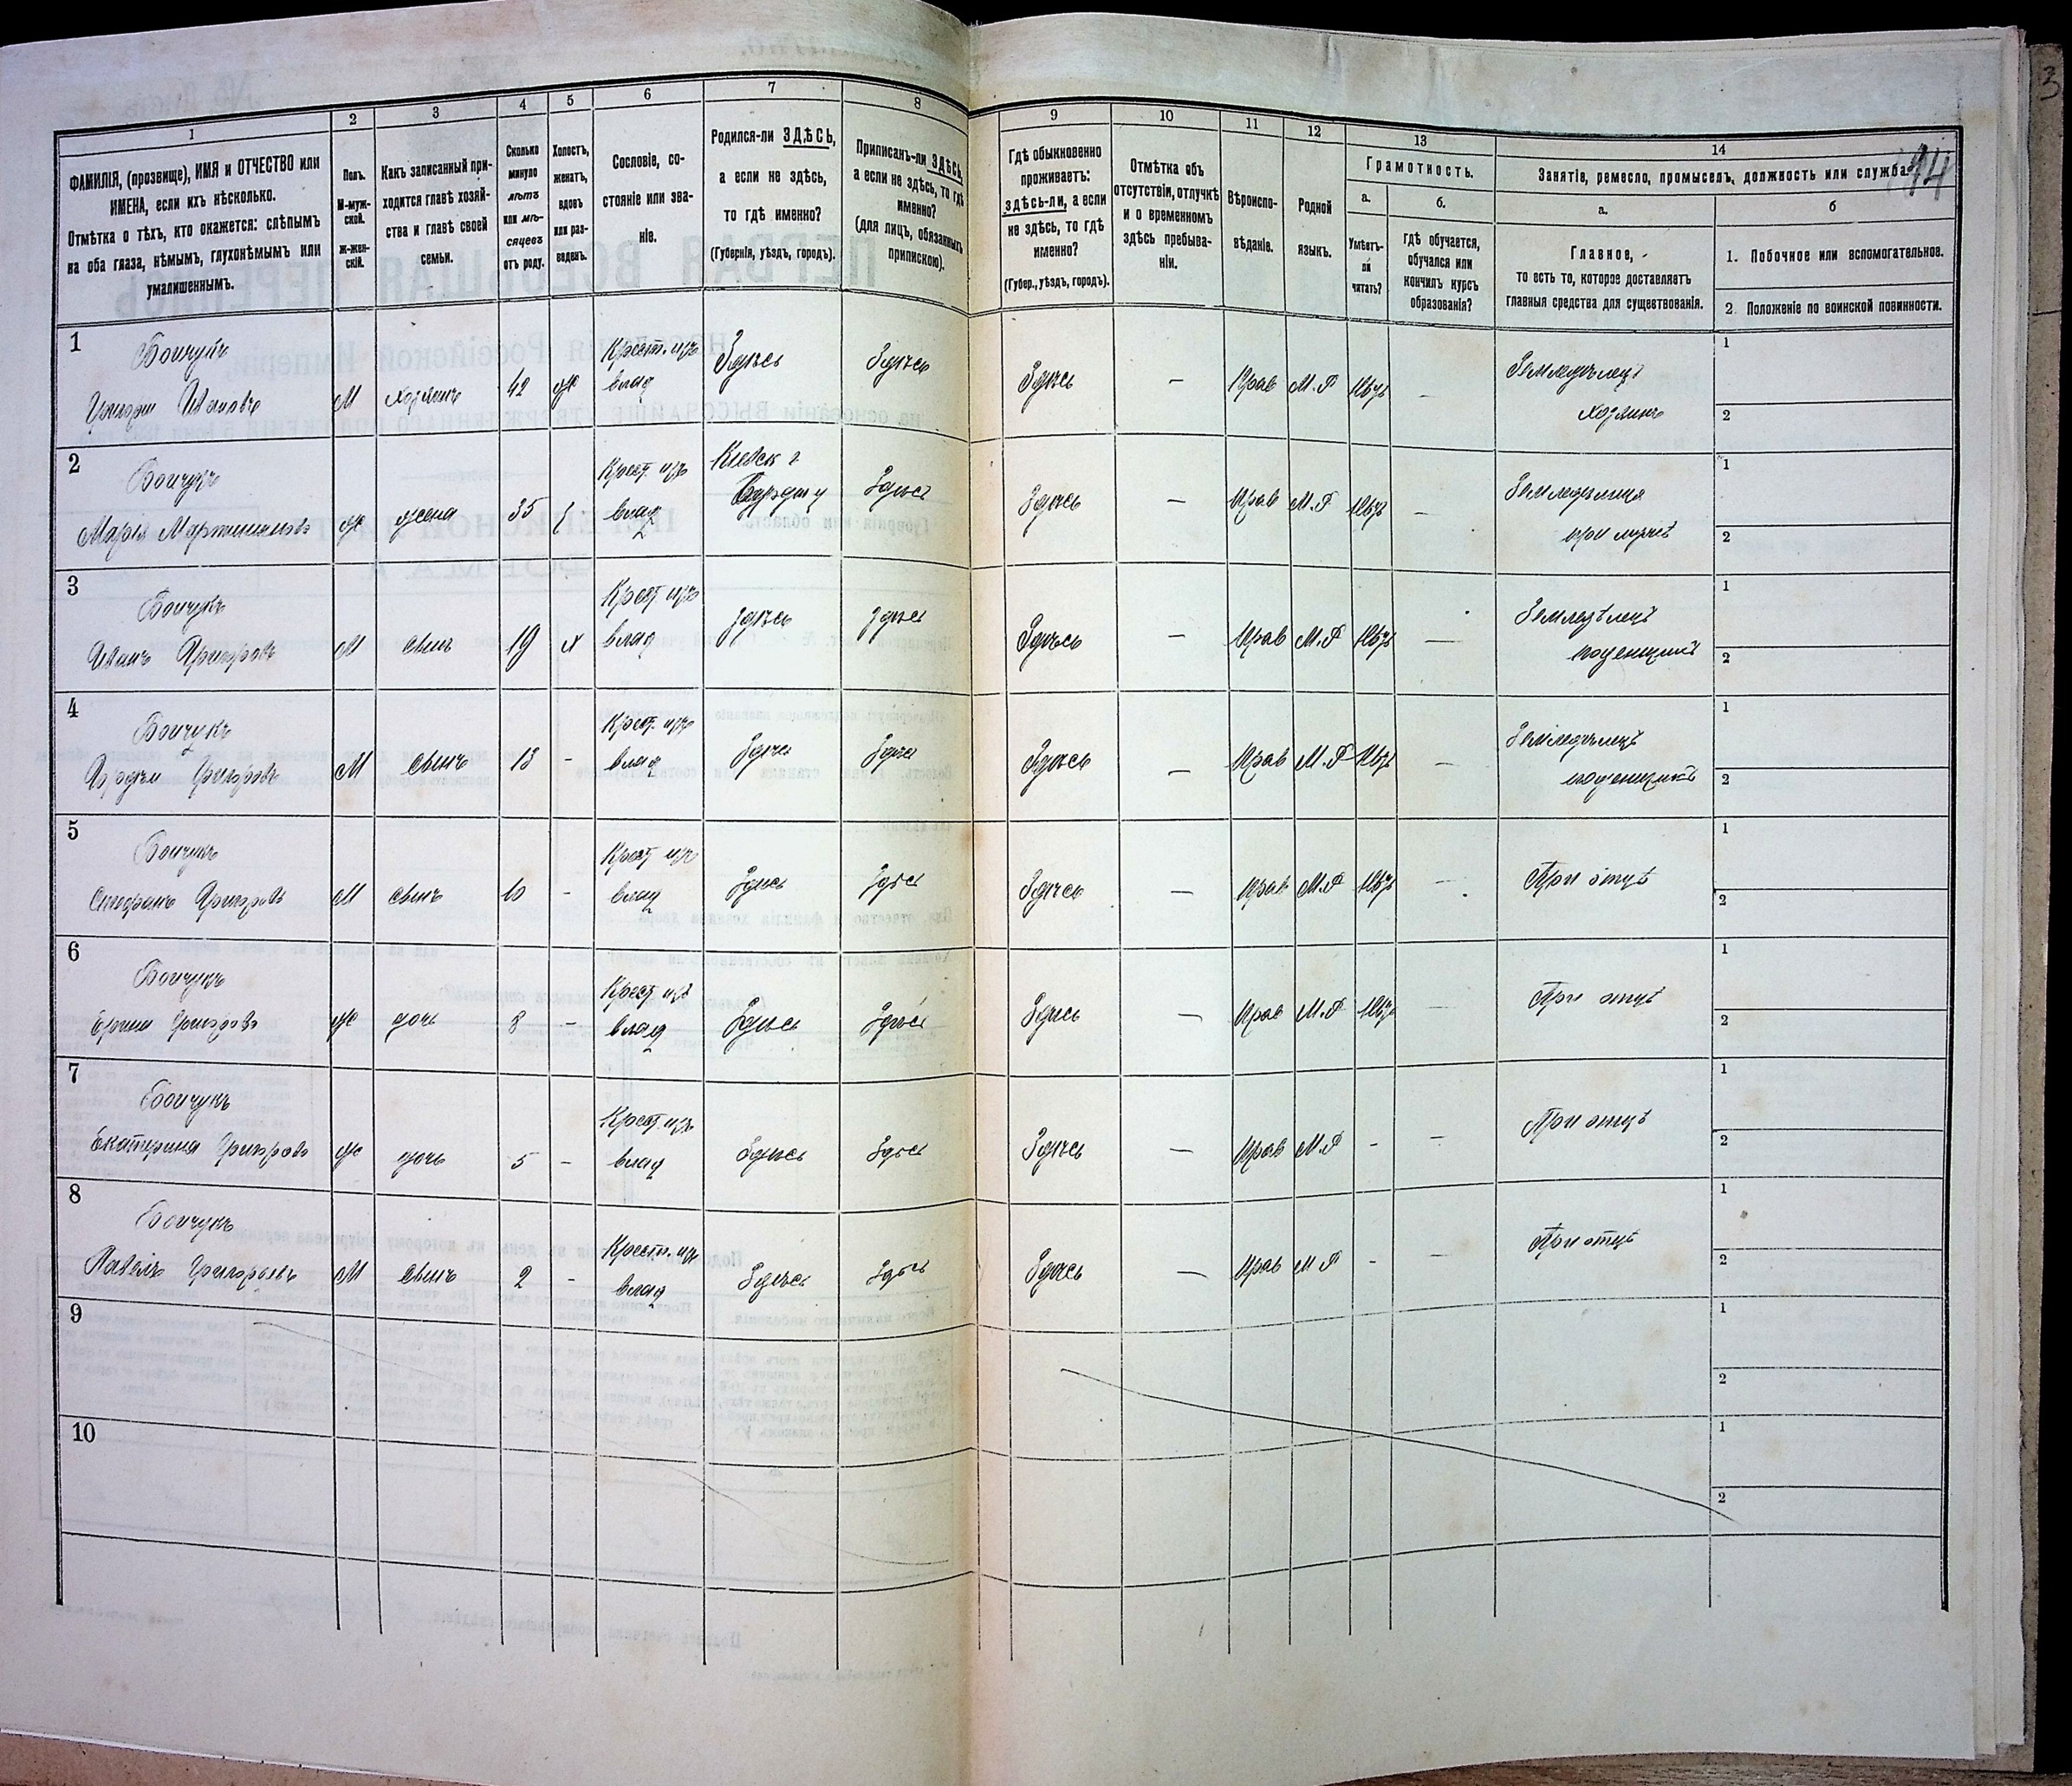 1 2 3 4 5 6 7 8 9 10 11 12 13 14
ФАМИЛІЯ, (прозвище), ИМЯ и ОТЧЕСТВО или
ИМЕНА, если ихъ нѣсколько.
Отмѣтка о тѣхъ, кто окажется: слѣпымъ
на оба глаза, нѣмымъ, глухонѣмымъ или
умалишеннымъ.
Полъ.
М-муж-
ской.
Ж-жен-
скій.
Какъ записанный при-
ходится главѣ хозяй-
ства и главѣ своей
семьи.
Сколько
минуло
лѣтъ
или мѣ-
сяцевъ
отъ роду.
Холостъ,
женатъ,
вдовъ
или раз-
веденъ.
Сословіе, со-
стояніе или зва-
ніе.
Родился-ли ЗДѢСЬ,
а если не здѣсь,
то гдѣ именно?
(Губернія, уѣздъ, городъ).
Приписанъ-ли ЗДѢСЬ,
а если не здѣсь, то гдѣ
именно?
(для лицъ, обязанныхъ
припискою).
Гдѣ обыкновенно
проживаетъ:
здѣсь-ли, а если
не здѣсь, то гдѣ
именно?
(Губер., уѣздъ, городъ).
Отмѣтка объ
отсутствіи, отлучкѣ
и о временномъ
здѣсь пребыва-
ніи.
Вѣроиспо-
вѣданіе.
Родной
языкъ.
Грамотность.
а.
Умѣетъ-
ли
читать?
б.
гдѣ обучается,
обучался или
кончилъ курсъ
образованія?
Занятіе, ремесло, промыселъ, должность или служба.
14
а.
Главное,
то есть то, которое доставляетъ
главныя средства для существованія.
б
1. Побочное или вспомогательное.
2. Положеніе по воинской повинности.
1
Бойчукъ Крест. изъ Здѣсь Здѣсь Земледѣлецъ 1
Григорій Ивановъ М хозяинъ 42 ж влад Здѣсь — Прав М.Р Нѣтъ — хозяинъ 2
2
Бойчукъ Крест. изъ Кіевск г Земледѣлица 1
Марія Мартиновна ж жена 35 влад Здѣсь Здѣсь — Прав М.Р Нѣтъ — при мужѣ 2
3
Бойчукъ Крест изъ Здѣсь Здѣсь Земледѣлецъ 1
Иванъ Григоровъ М сынъ 19 х влад Здѣсь — Прав М.Р Нѣтъ — поденщикъ 2
4
Бойчукъ Крест. изъ Земледѣлецъ 1
Григоровъ М сынъ 13 - влад Здѣсь Здѣсь Здѣсь — Прав М.Р Нѣтъ — поденщикъ 2
5
Бойчукъ Крест изъ 1
Стефанъ Григоровъ М сынъ 10 - влад Здѣсь Здѣсь Здѣсь — Прав М.Р Нѣтъ — При отцѣ 2
6
Бойчукъ Крест изъ 1
Григорова ж дочь 8 - влад Здѣсь Здѣсь Здѣсь — Прав М.Р Нѣтъ — При отцѣ 2
7
Бойчукъ Крест. изъ 1
Екатерина Григорова ж дочь 5 - влад Здѣсь Здѣсь Здѣсь — Прав М.Р - — При отцѣ 2
8
Бойчукъ Крест. изъ 1
Павелъ Григорьевъ М сынъ 2 - влад Здѣсь Здѣсь Здѣсь — Прав М Р - — При отцѣ 2
9 1
2
10 1
2
3